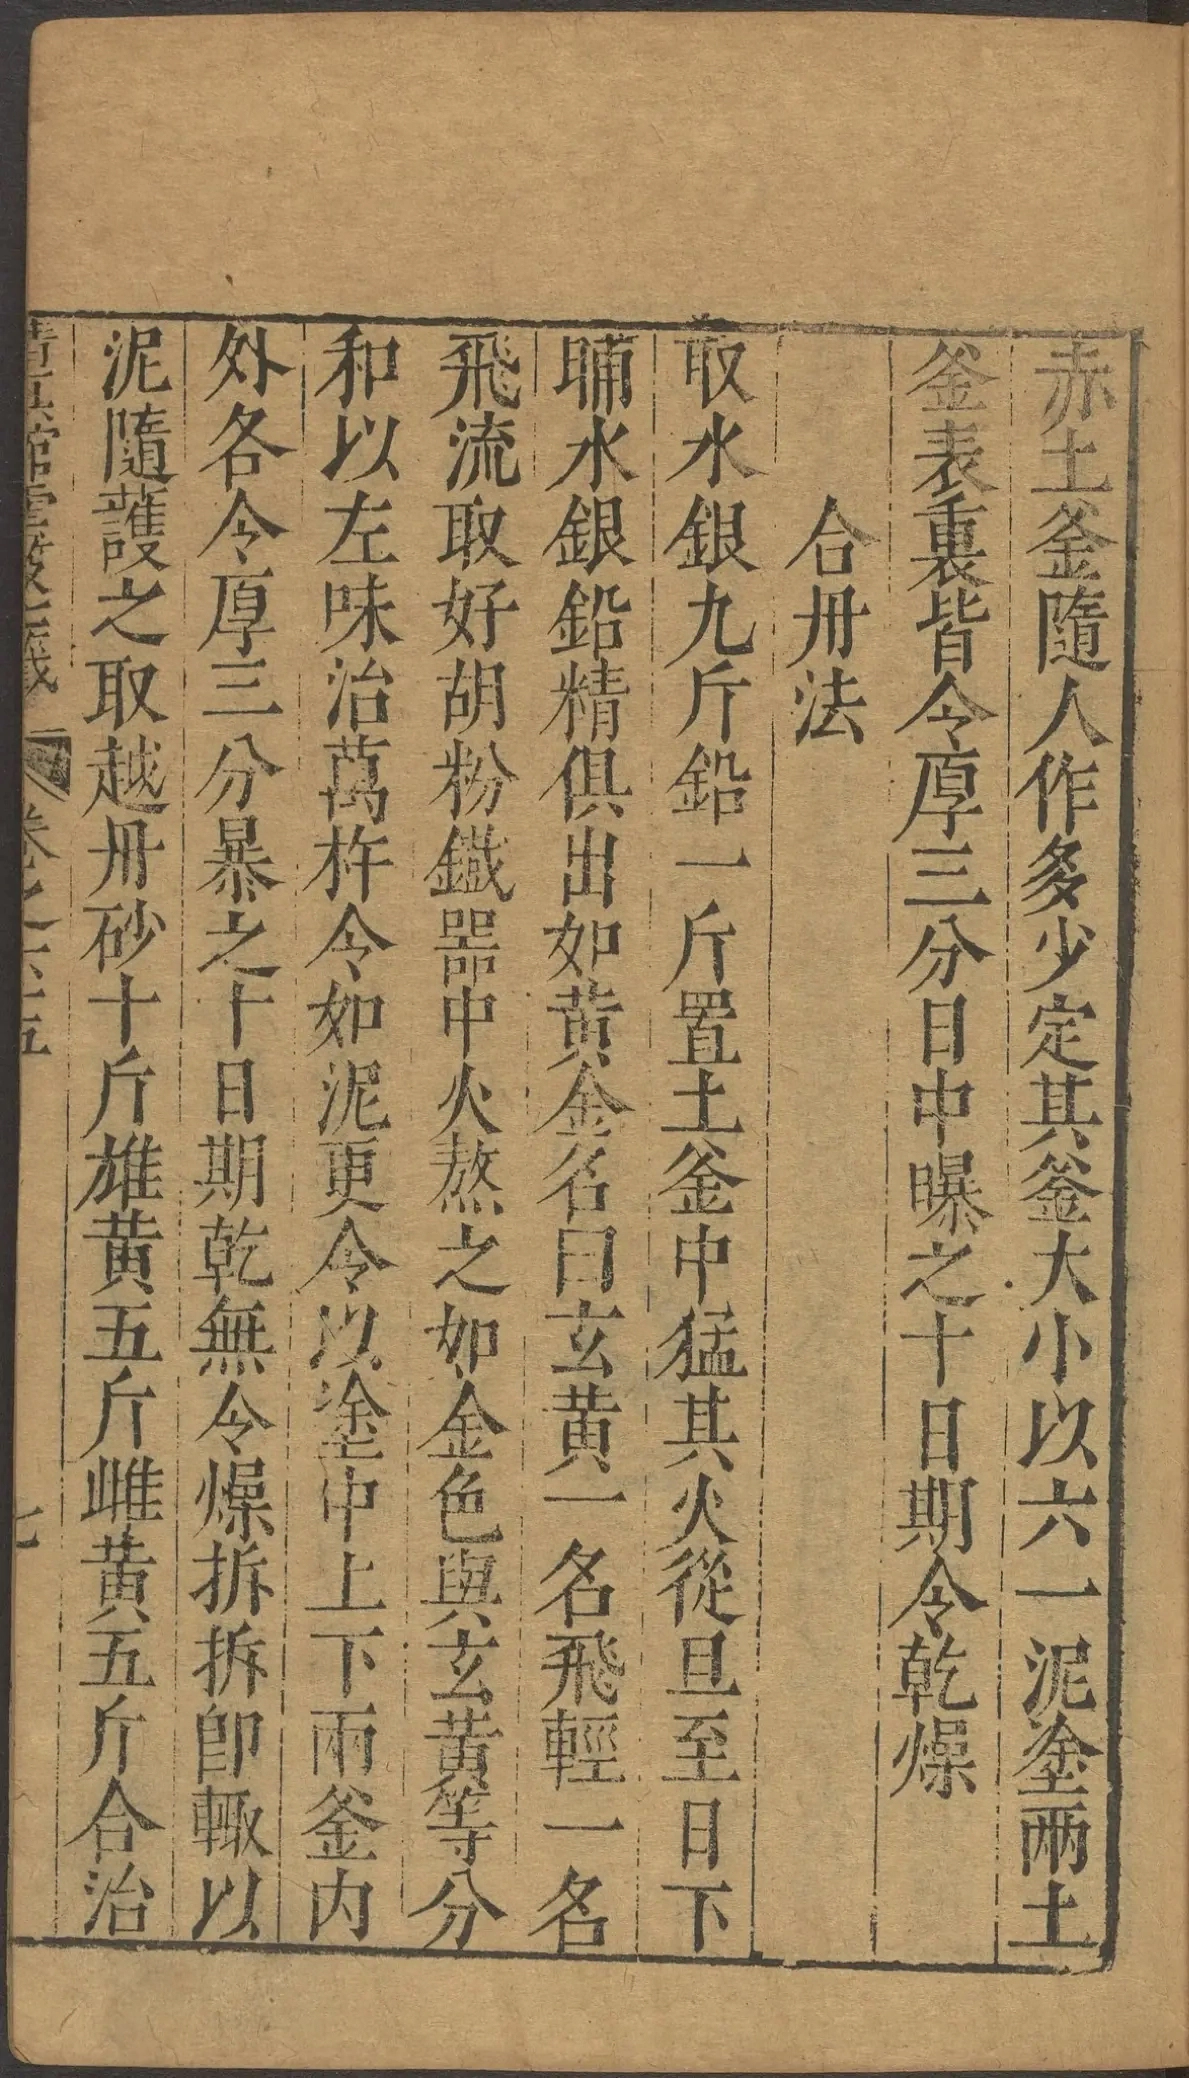 赤土釜隨人作多少定其釜大小以六一泥塗兩土
釜表裏皆令厚三分日中曝之十日期令乾燥
合丹法
取水銀九斤鉛一斤置土釜中猛其火從旦至日下
晡水銀鉛精俱出如黃金名曰玄黃一名飛輕一名
飛流取好胡粉鐵器中火熬之如金色與玄黃等分
和以左味治萬杵令如泥更令以塗中上下兩釜內
外各令厚三分暴之十日期乾無令燥拆拆卽輙以
泥隨護之取越丹砂十斤雄黃五斤雌黃五斤合治
卷之六十五
七